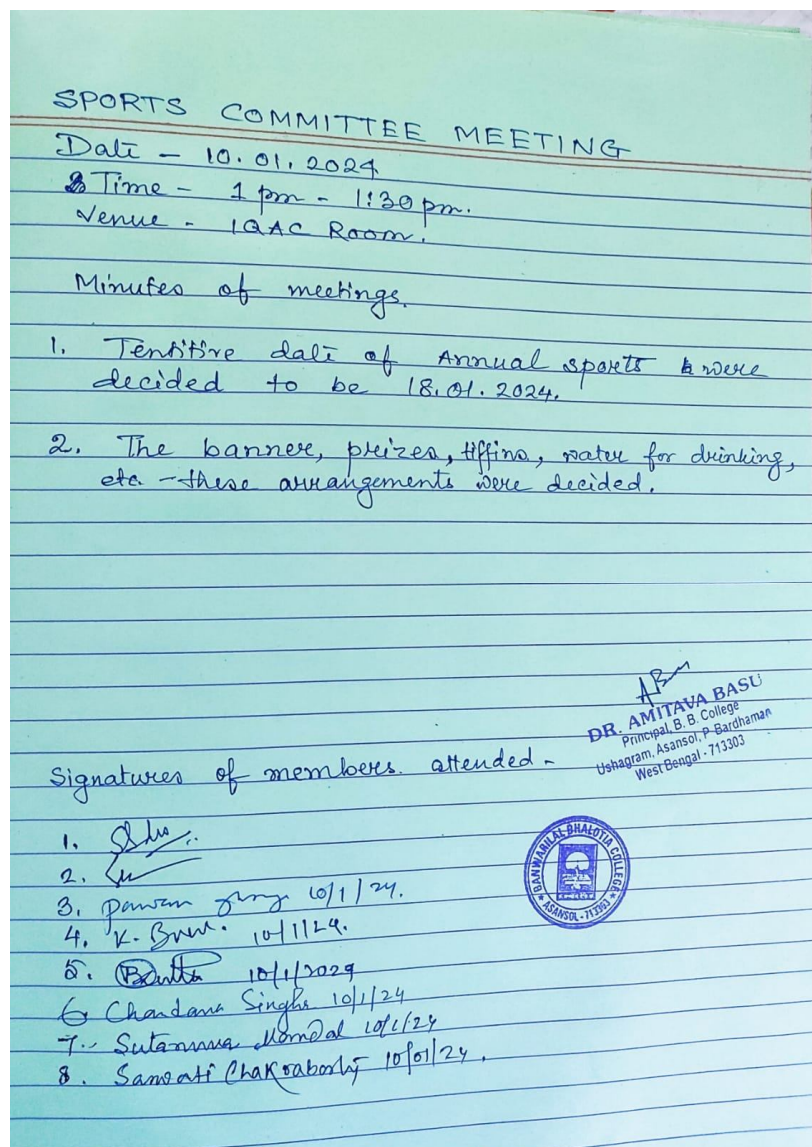 SPORTS COMMITTEE MEETING
Date - 10.01.2024
Time - 1 pm - 1:30 pm.
Venue - IQAC Room.
Minutes of meetings.
1. Tentitive date of Annual sports were
decided to be 18.01.2024.
2. The banner, preizes, tiffins, water for drinking,
etc - these arrangements were decided.
DR. AMITAVA BASU
Principal, B. B. College
Ushagram, Asansol, P-Bardhaman
West Bengal - 713303
Signatures of members attended -
BANWARILAL BHALOTIA COLLEGE
* ASANSOL - 713303 *
1.
2.
3. Pawan 10/1/24.
4. K. 10/1/24.
5. 10/1/2024
6 Chandana Singha 10/1/24
7. Sutanuva Mondal 10/1/24
8. Sanwati Chakraborty 10/01/24.